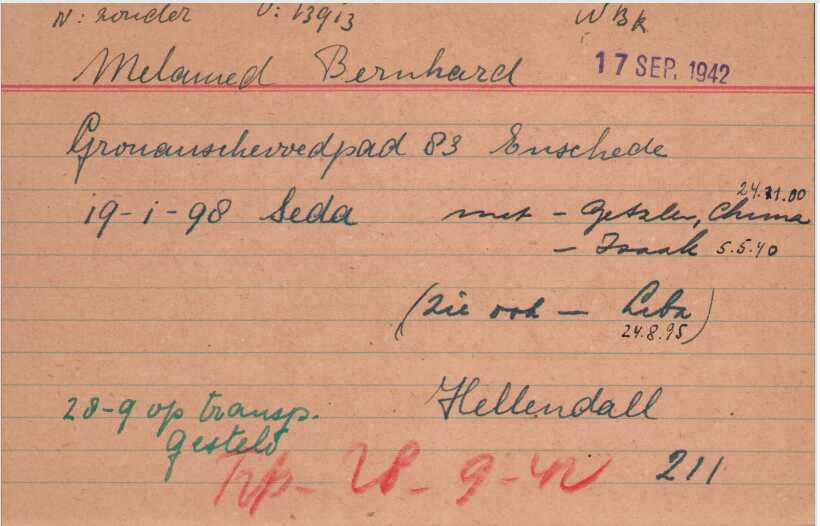 N: zonder U: 13913 WBK
Melamed Bernhard 17 SEP. 1942
Gronauschevoedpad 83 Enschede
19-1-98 Seda met - Getzler, Chuma 24.11.00
- Isaak 5.5.40
(zie ook - Liba)
24.8.95
28-9 op transp. Hellendall
gesteld
Trp- 28-9-42 211